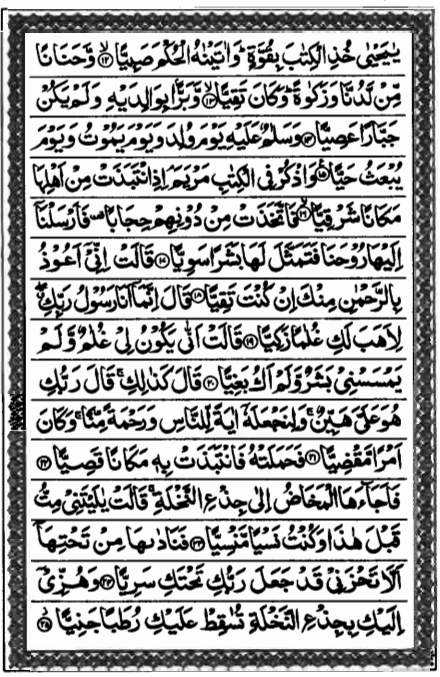 يٰيَحْيٰى خُذِ الْكِتٰبَ بِقُوَّةٍ ؕ وَاٰتَيْنٰهُ الْحُكْمَ صَبِيًّا ۙ﴿۱۲﴾ وَّحَنَانًا
مِّنْ لَّدُنَّا وَزَكٰوةً ؕ وَكَانَ تَقِيًّا ۙ﴿۱۳﴾ وَّبَرًّۢا بِوَالِدَيْهِ وَلَمْ يَكُنْ
جَبَّارًا عَصِيًّا ﴿۱۴﴾ وَسَلٰمٌ عَلَيْهِ يَوْمَ وُلِدَ وَيَوْمَ يَمُوْتُ وَيَوْمَ
يُبْعَثُ حَيًّا ﴿۱۵﴾ وَاذْكُرْ فِى الْكِتٰبِ مَرْيَمَ ۘ اِذِ انْتَبَذَتْ مِنْ اَهْلِهَا
مَكَانًا شَرْقِيًّا ۙ﴿۱۶﴾ فَاتَّخَذَتْ مِنْ دُوْنِهِمْ حِجَابًا ۪ فَاَرْسَلْنَاۤ
اِلَيْهَا رُوْحَنَا فَتَمَثَّلَ لَهَا بَشَرًا سَوِيًّا ﴿۱۷﴾ قَالَتْ اِنِّىْۤ اَعُوْذُ
بِالرَّحْمٰنِ مِنْكَ اِنْ كُنْتَ تَقِيًّا ﴿۱۸﴾ قَالَ اِنَّمَاۤ اَنَا رَسُوْلُ رَبِّكِ ۖ
لِاَهَبَ لَكِ غُلٰمًا زَكِيًّا ﴿۱۹﴾ قَالَتْ اَنّٰى يَكُوْنُ لِىْ غُلٰمٌ وَّلَمْ
يَمْسَسْنِىْ بَشَرٌ وَّلَمْ اَكُ بَغِيًّا ﴿۲۰﴾ قَالَ كَذٰلِكِ ۚ قَالَ رَبُّكِ
هُوَ عَلَىَّ هَيِّنٌ ۚ وَلِنَجْعَلَهٗۤ اٰيَةً لِّلنَّاسِ وَرَحْمَةً مِّنَّا ۚ وَكَانَ
اَمْرًا مَّقْضِيًّا ﴿۲۱﴾ فَحَمَلَتْهُ فَانْتَبَذَتْ بِهٖ مَكَانًا قَصِيًّا ﴿۲۲﴾
فَاَجَآءَهَا الْمَخَاضُ اِلٰى جِذْعِ النَّخْلَةِ ۚ قَالَتْ يٰلَيْتَنِىْ مِتُّ
قَبْلَ هٰذَا وَكُنْتُ نَسْيًا مَّنْسِيًّا ﴿۲۳﴾ فَنَادٰىهَا مِنْ تَحْتِهَاۤ
اَلَّا تَحْزَنِىْ قَدْ جَعَلَ رَبُّكِ تَحْتَكِ سَرِيًّا ﴿۲۴﴾ وَهُزِّىْۤ
اِلَيْكِ بِجِذْعِ النَّخْلَةِ تُسٰقِطْ عَلَيْكِ رُطَبًا جَنِيًّا ﴿۲۵﴾